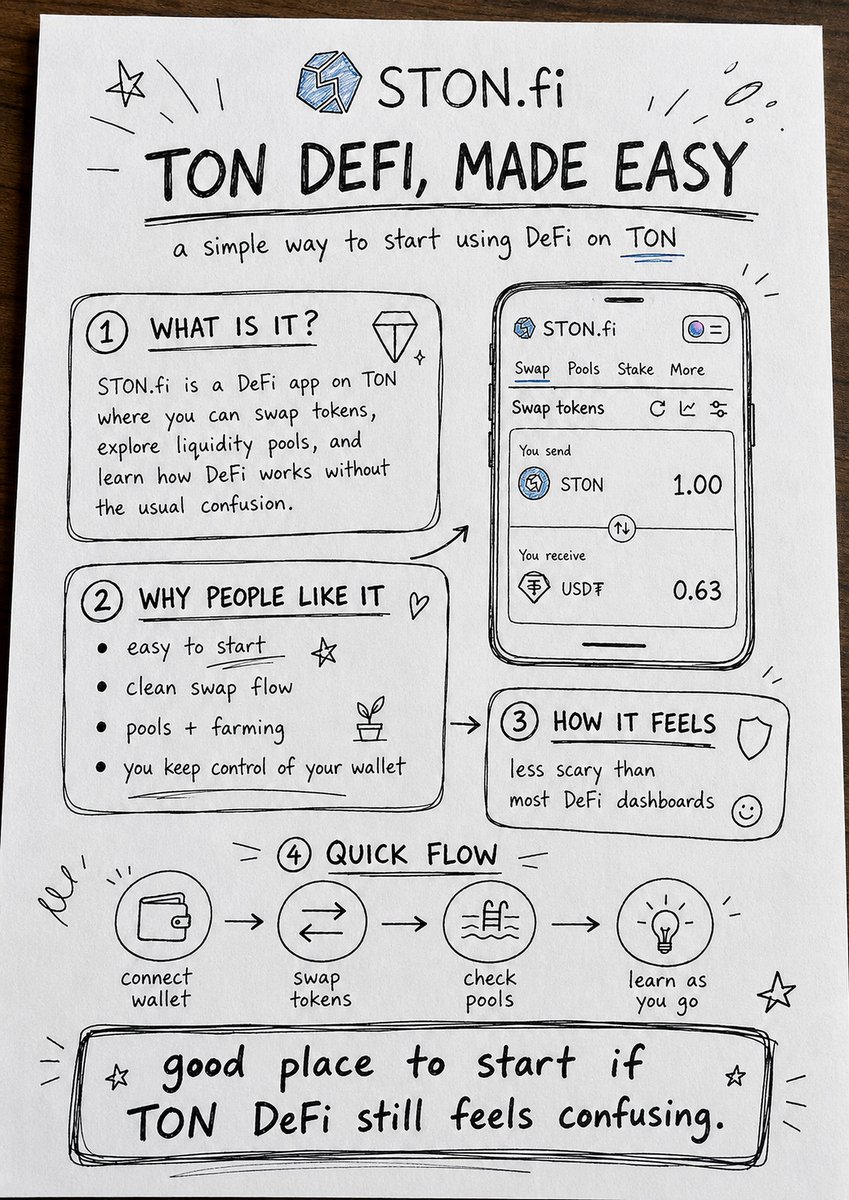 STON.fi
TON DEFI, MADE EASY
a simple way to start using DeFi on TON
1 WHAT IS IT?
STON.fi is a DeFi app on TON
where you can swap tokens,
explore liquidity pools, and
learn how DeFi works without
the usual confusion.
STON.fi
Swap Pools Stake More
Swap tokens
You send
STON 1.00
You receive
USD₮ 0.63
2 WHY PEOPLE LIKE IT
• easy to start
• clean swap flow
• pools + farming
• you keep control of your wallet
3 HOW IT FEELS
less scary than
most DeFi dashboards
4 QUICK FLOW
connect
wallet
swap
tokens
check
pools
learn as
you go
good place to start if
TON DeFi still feels confusing.